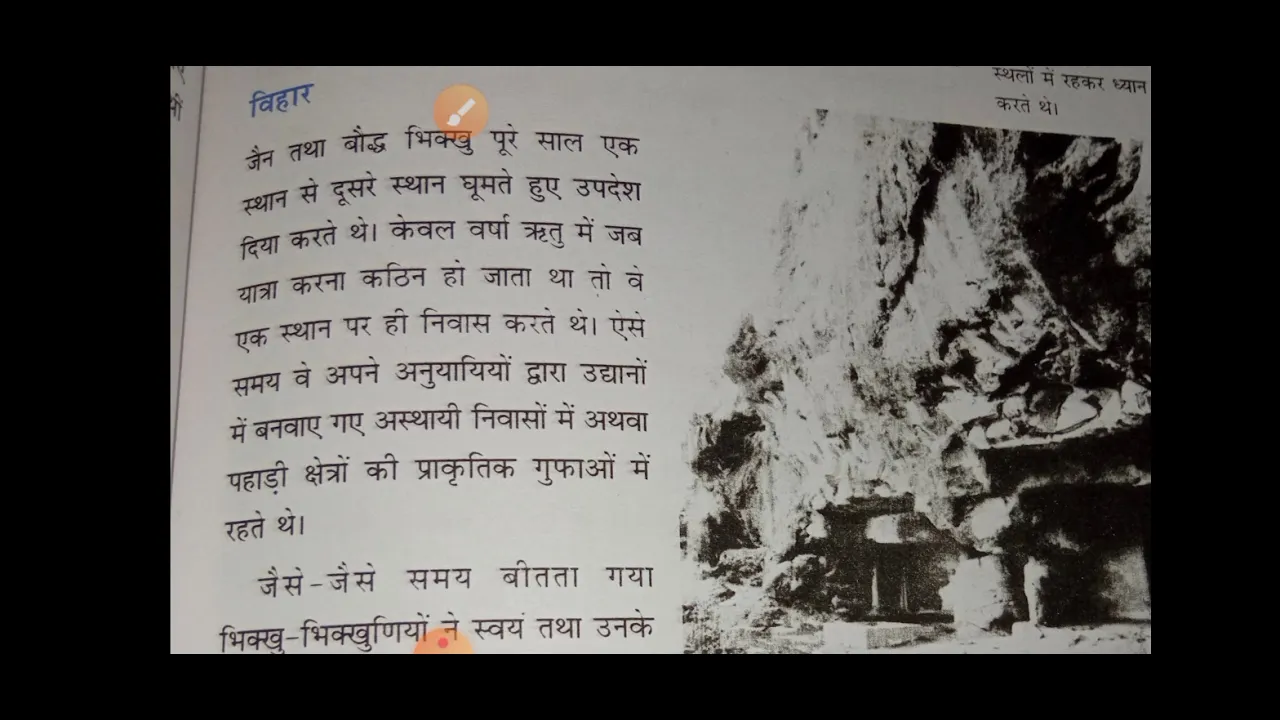 विहार
जैन तथा बौद्ध भिक्खु पूरे साल एक
स्थान से दूसरे स्थान घूमते हुए उपदेश
दिया करते थे। केवल वर्षा ऋतु में जब
यात्रा करना कठिन हो जाता था तो वे
एक स्थान पर ही निवास करते थे। ऐसे
समय वे अपने अनुयायियों द्वारा उद्यानों
में बनवाए गए अस्थायी निवासों में अथवा
पहाड़ी क्षेत्रों की प्राकृतिक गुफाओं में
रहते थे।
जैसे-जैसे समय बीतता गया
भिक्खु-भिक्खुणियों ने स्वयं तथा उनके
स्थलों में रहकर ध्यान
करते थे।